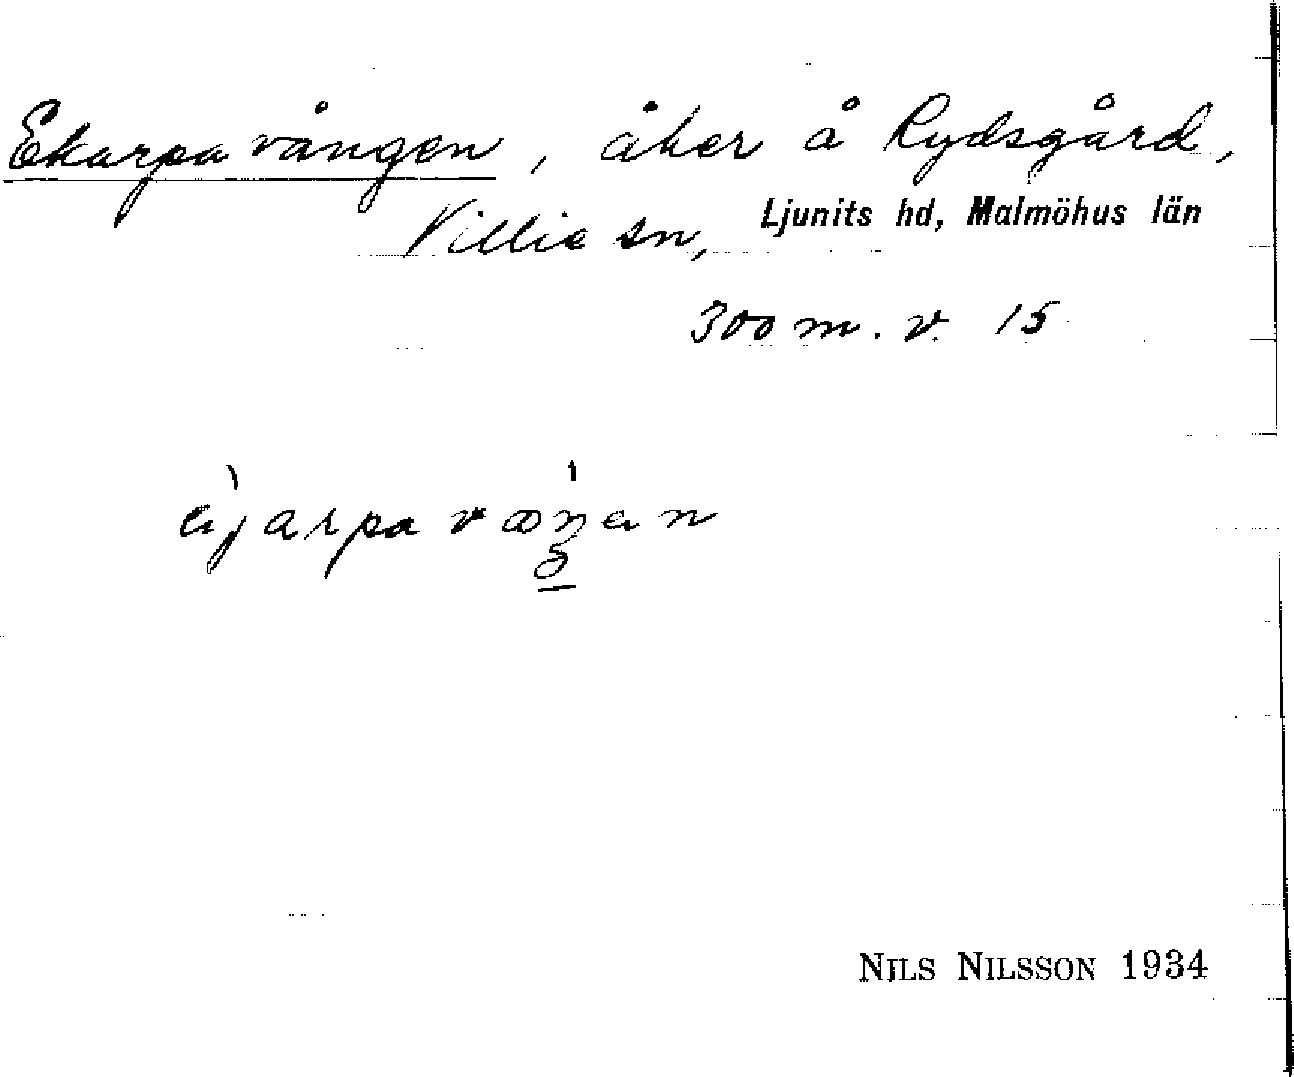 Ekarpa vången, åker å Rydsgård,
Villie sn, Ljunits hd, Malmöhus län
300 m. v. 15
Nils Nilsson 1934